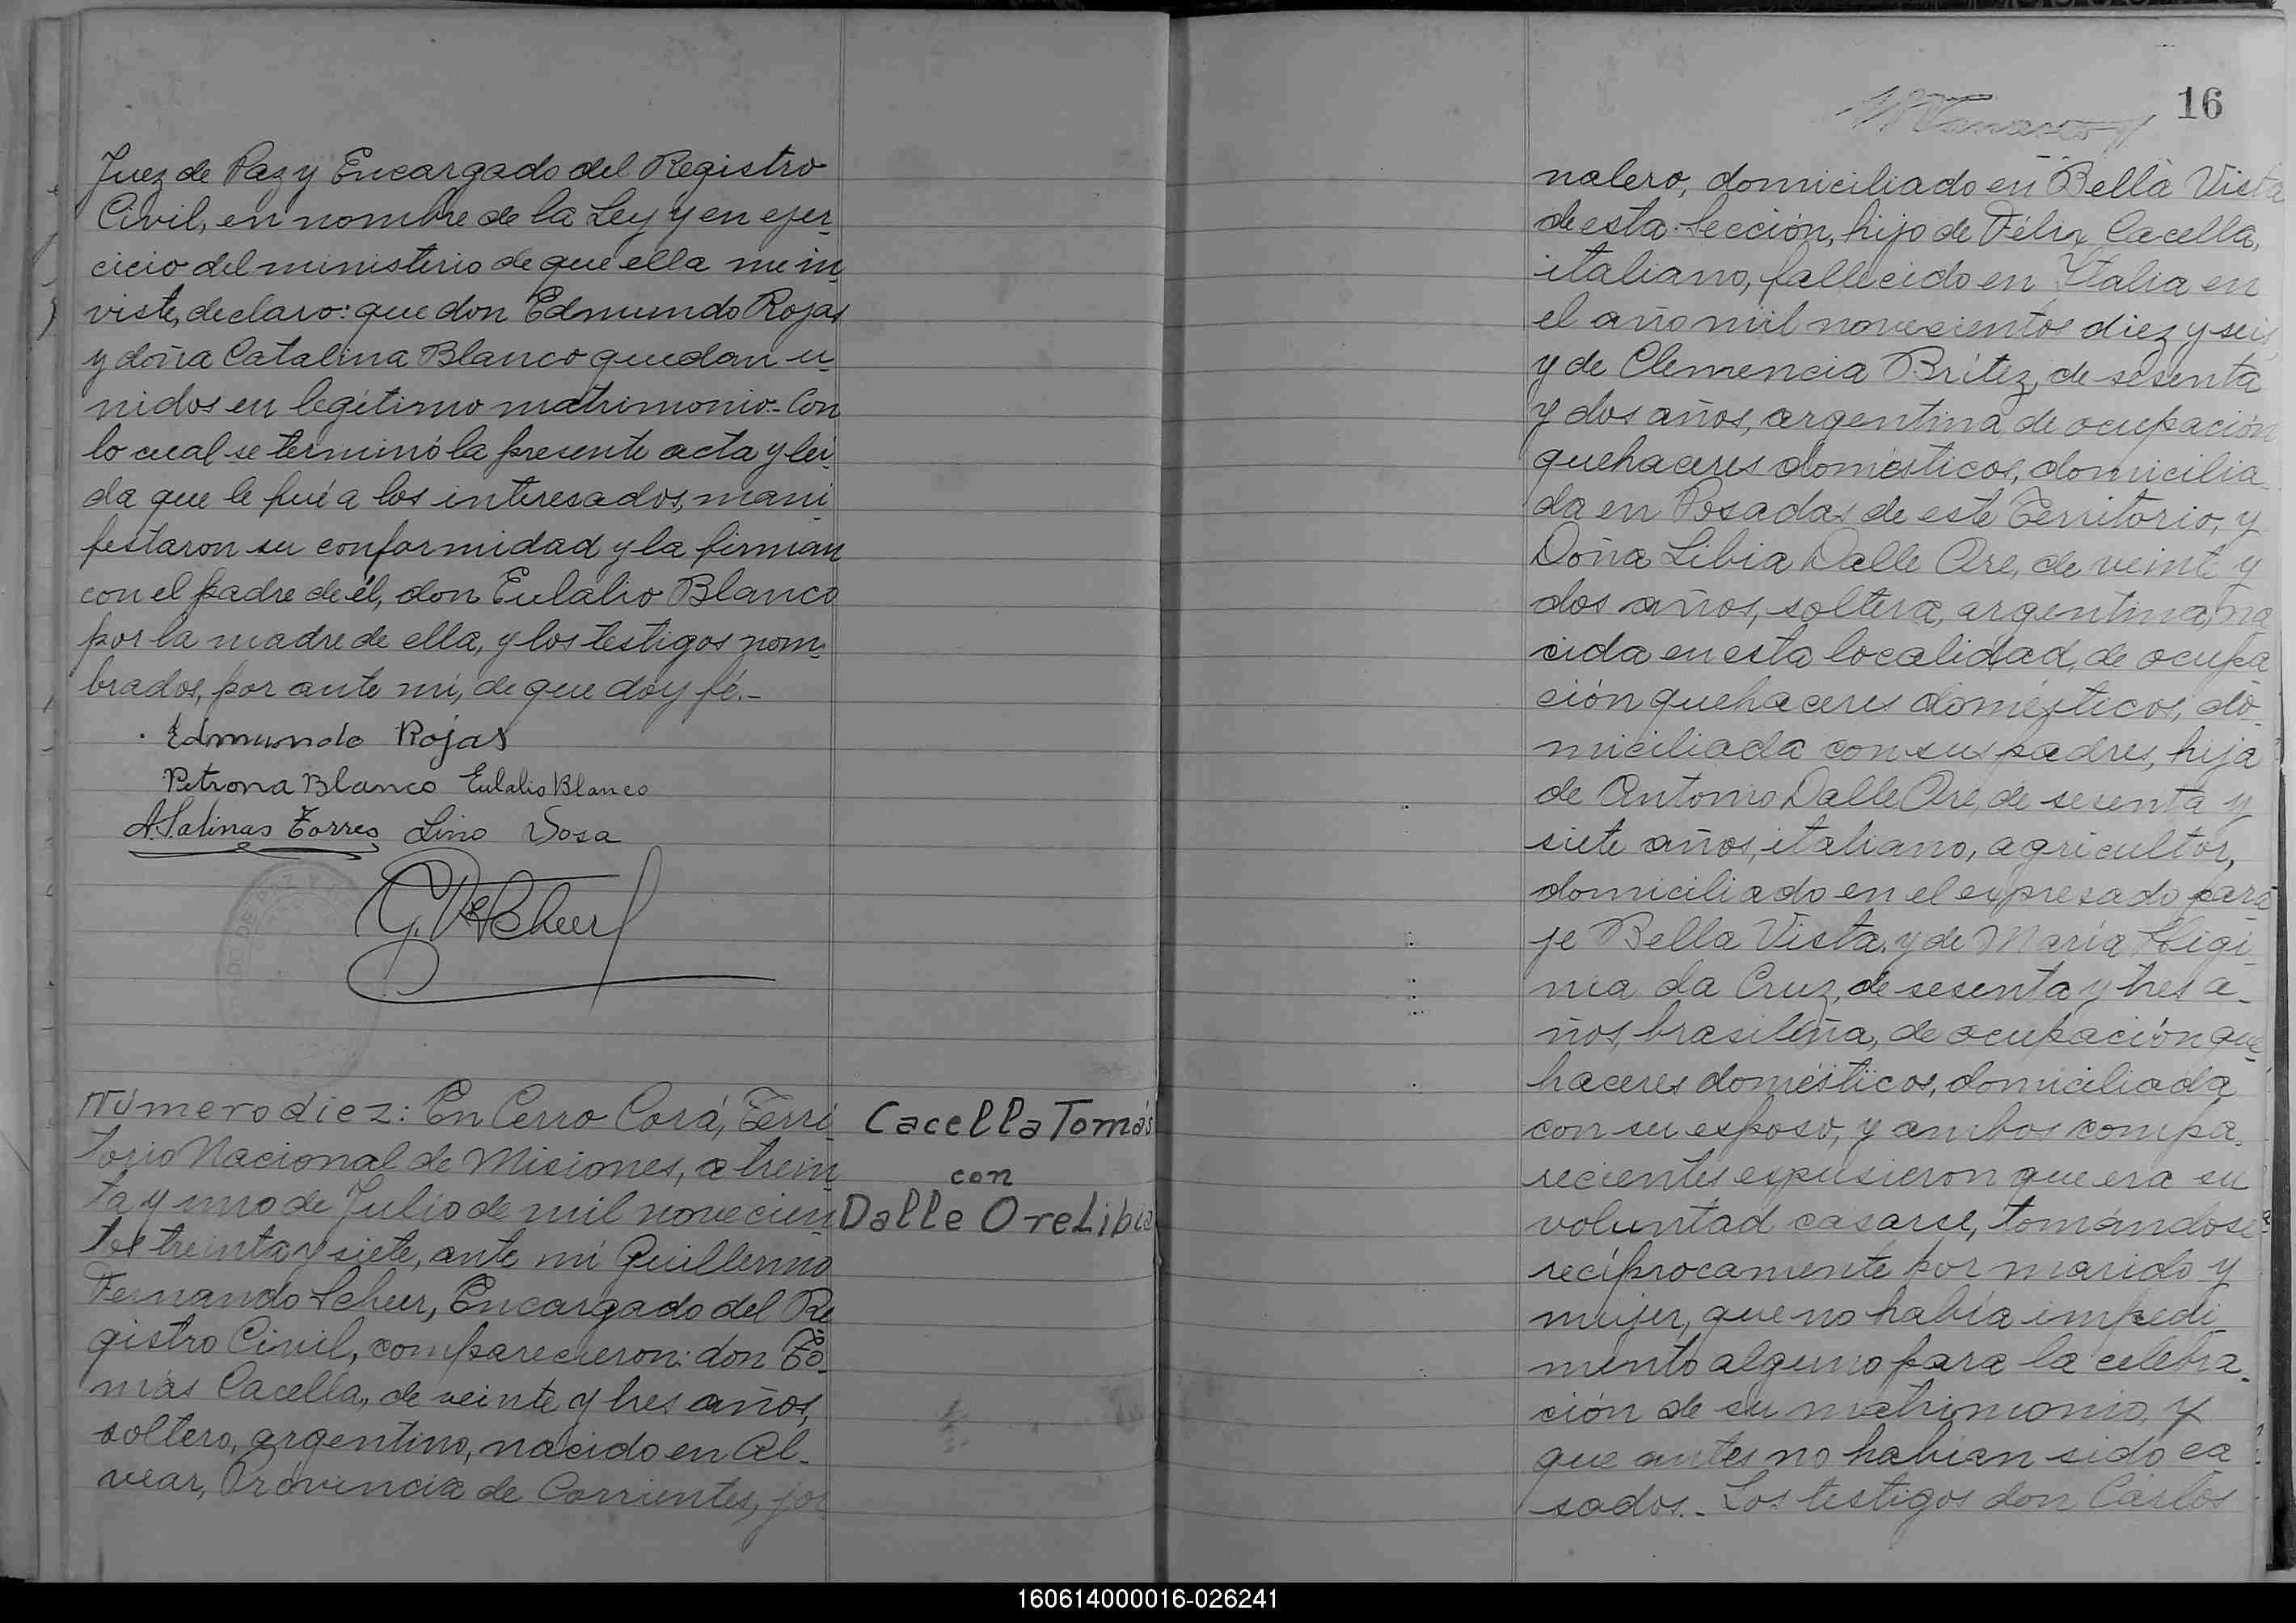 Juez de Paz y Encargado del Registro
Civil, en nombre de la Ley y en ejer-
cicio del ministerio de que ella me in-
viste, declaro: que don Edmundo Rojas
y doña Catalina Blanco quedan u-
nidos en legítimo matrimonio.- Con
lo cual se terminó la presente acta y leí-
da que le fué a los interesados, mani-
festaron su conformidad y la firman
con el padre de él, don Eulalio Blanco
por la madre de ella, y los testigos nom-
brados, por ante mí, de que doy fé.-
Edmundo Rojas
Petrona Blanco Eulalio Blanco
A. Salinas Torres Lino Sosa
Número diez: En Cerro Corá, Terri-
torio Nacional de Misiones, a trein-
ta y uno de Julio de mil novecien-
tos treinta y siete, ante mí Guillermo
Fernando Scheer, Encargado del Re-
gistro Civil, comparecieron: don To-
más Cacella, de veinte y tres años,
soltero, argentino, nacido en Al-
vear, Provincia de Corrientes, jor-
Cacella Tomás
con
Dalle Ore Libia
16
nalero, domiciliado en Bella Vista
de esta Sección, hijo de Félix Cacella,
italiano, fallecido en Italia en
el año mil novecientos diez y seis,
y de Clemencia Brítez, de sesenta
y dos años, argentina, de ocupación
quehaceres domésticos, domicilia-
da en Posadas de este Territorio, y
Doña Libia Dalle Ore, de veinte y
dos años, soltera, argentina, na-
cida en esta localidad, de ocupa-
ción quehaceres domésticos, do-
miciliada con sus padres, hija
de Antonio Dalle Ore, de sesenta y
siete años, italiano, agricultor,
domiciliado en el expresado para-
je Bella Vista, y de María Higi-
nia da Cruz, de sesenta y tres a-
ños, brasileña, de ocupación que-
haceres domésticos, domiciliada
con su esposo, y ambos compa-
recientes expusieron que era su
voluntad casarse, tomándose
recíprocamente por marido y
mujer, que no había impedi-
mento alguno para la celebra-
ción de su matrimonio, y
que antes no habían sido ca-
sados.- Los testigos don Carlos
160614000016-026241